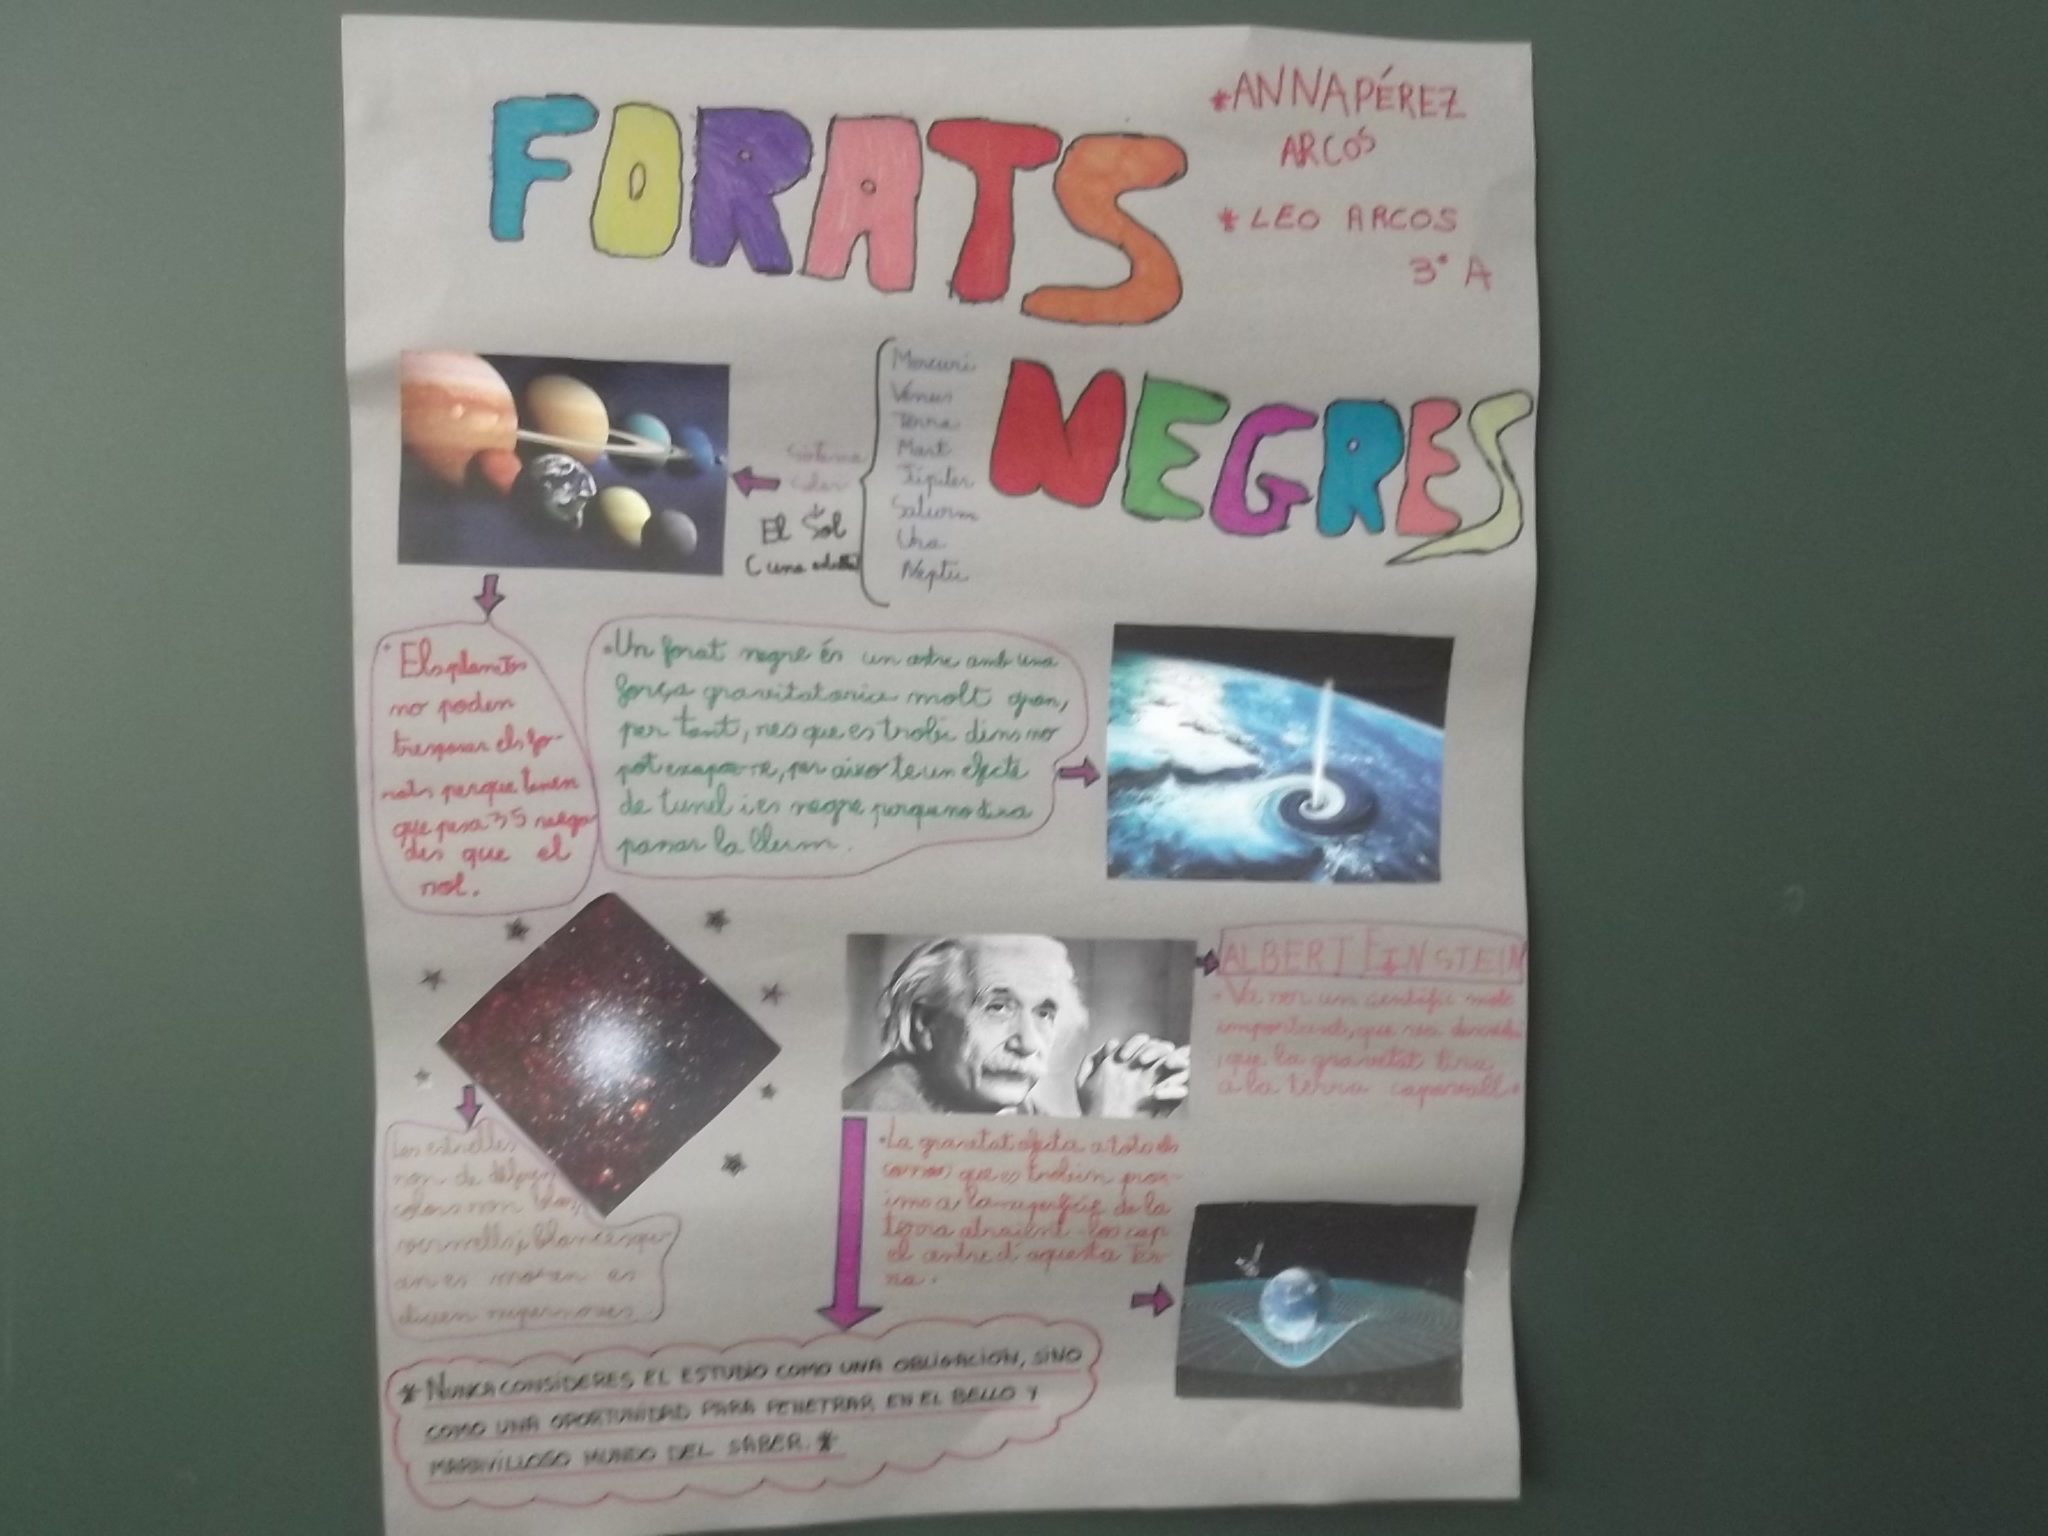 FORATS
NEGRES
*ANNA PÉREZ
ARCOS
*LEO ARCOS
3º A
Mercuri
Venus
Terra
Mart
Júpiter
Saturn
Ura
Neptu
Sistema
solar
El Sol
(una
Els planetes
no poden
traspasar els fo-
rats perque tenen
que pesa 35 vega
des que el
sol.
Un forat negre és un astre amb una
força gravitatoria molt gran,
per tant, res que es trobi dins no
pot escapar-se, per aixo te un efecte
de tunel i es negre perque no dixa
pasar la llum.
ALBERT EINSTEIN
Va ser un científic molt
important, que va
que la gravetat tira
a la terra
La gravetat afecta a tots els
cosos que es trobin prox-
ims a la superficie de la
terra atraient-los cap
el centre d'aquesta ter-
ra.
Les estrelles
son de
colors son
vermelles i blanques qu
an es moren es
diuen supernoves
*NUNCA CONSIDERES EL ESTUDIO COMO UNA OBLIGACION, SINO
COMO UNA OPORTUNIDAD PARA PENETRAR EN EL BELLO Y
MARAVILLOSO MUNDO DEL SABER.*